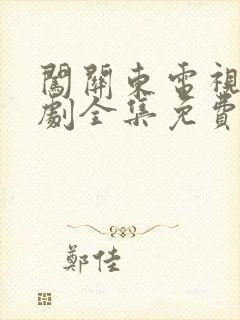 闖關東電視
劇全集免費
鄭佳